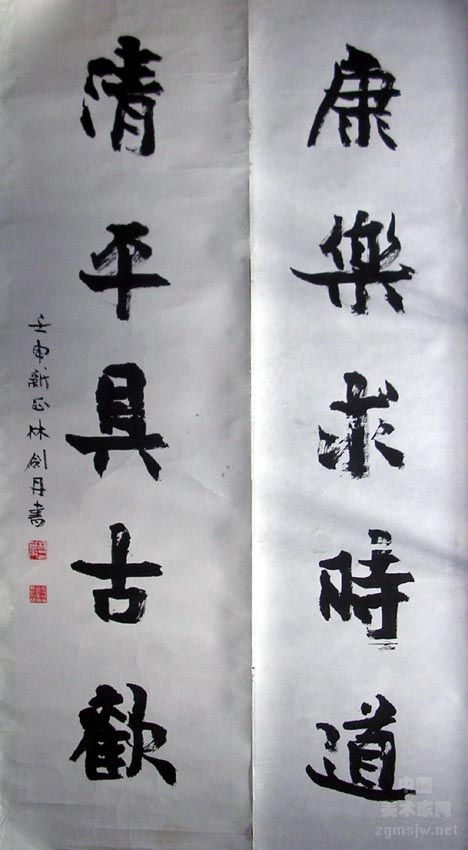 康樂求時道
清平具古歡
壬申新正林劍丹書
中国
美术家网
zgmsjw.net